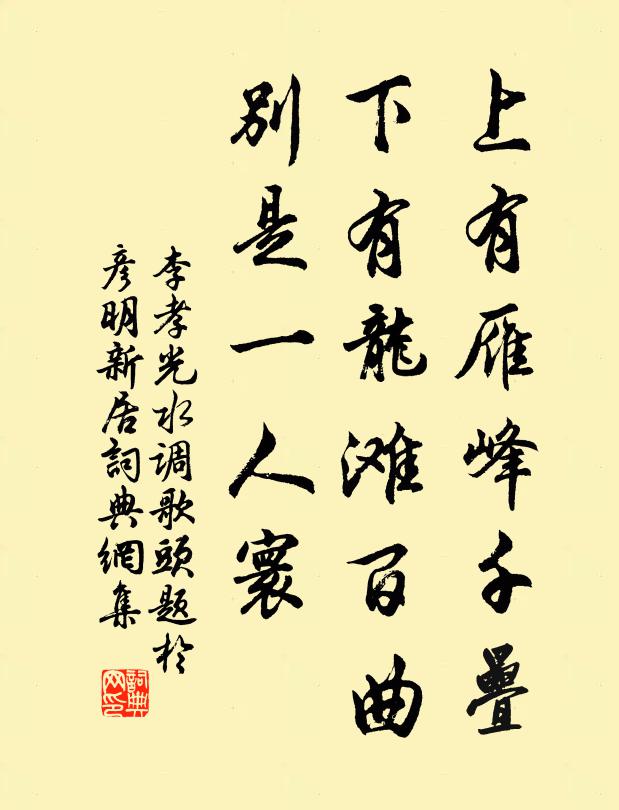 上有雁峰千疊
下有龍滩百曲
別是一人寰
李孝光水调歌頭題於
彦明新居詞典網集
詞典网印